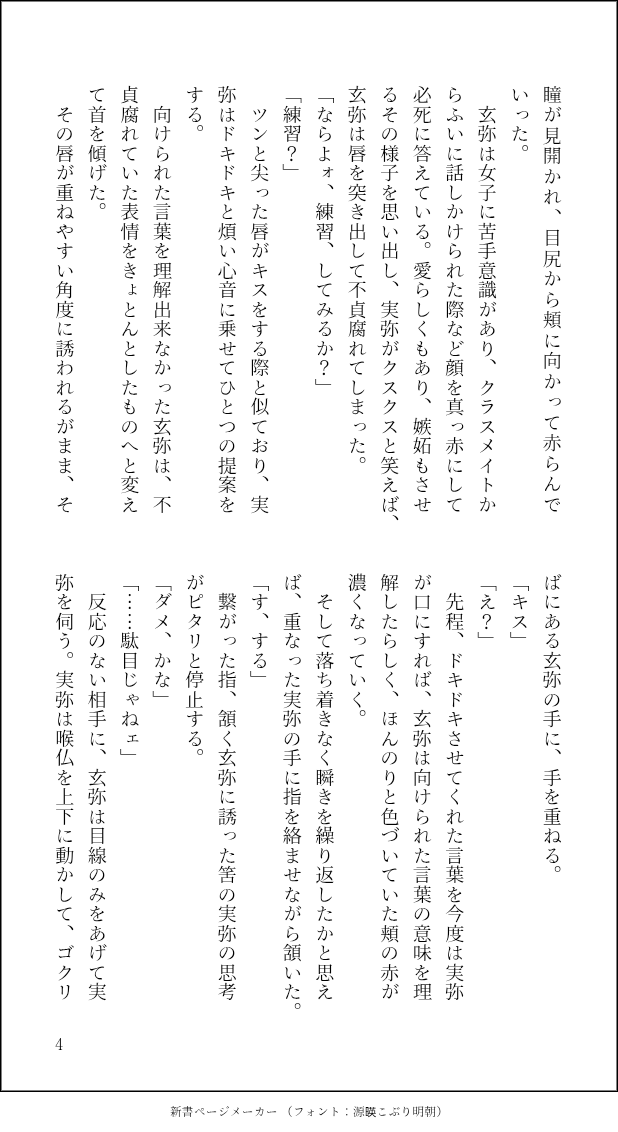 瞳が見開かれ、目尻から頬に向かって赤らんで
いった。
　玄弥は女子に苦手意識があり、クラスメイトか
らふいに話しかけられた際など顔を真っ赤にして
必死に答えている。愛らしくもあり、嫉妬もさせ
るその様子を思い出し、実弥がクスクスと笑えば、
玄弥は唇を突き出して不貞腐れてしまった。
「ならよォ、練習、してみるか？」
「練習？」
　ツンと尖った唇がキスをする際と似ており、実
弥はドキドキと煩い心音に乗せてひとつの提案を
する。
　向けられた言葉を理解出来なかった玄弥は、不
貞腐れていた表情をきょとんとしたものへと変え
て首を傾げた。
　その唇が重ねやすい角度に誘われるがまま、そ
ばにある玄弥の手に、手を重ねる。
「キス」
「え？」
　先程、ドキドキさせてくれた言葉を今度は実弥
が口にすれば、玄弥は向けられた言葉の意味を理
解したらしく、ほんのりと色づいていた頬の赤が
濃くなっていく。
　そして落ち着きなく瞬きを繰り返したかと思え
ば、重なった実弥の手に指を絡ませながら頷いた。
「す、する」
　繋がった指、頷く玄弥に誘った筈の実弥の思考
がピタリと停止する。
「ダメ、かな」
「……駄目じゃねェ」
　反応のない相手に、玄弥は目線のみをあげて実
弥を伺う。実弥は喉仏を上下に動かして、ゴクリ
4
新書ページメーカー（フォント：源暎こぶり明朝）